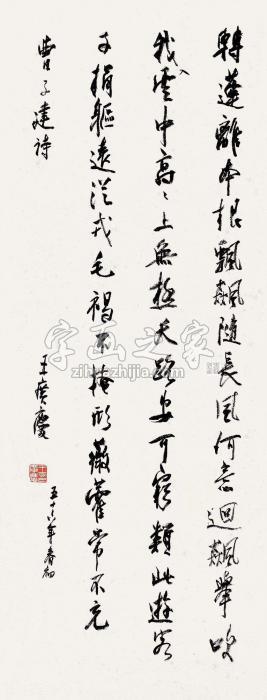 轉蓬離本根飄飖隨長風何意迴飇舉吹
我雲中高高上無極天路安可窮類此遊客
子捐軀遠從戎毛褐不掩形薇藿常不充
曹子建詩
王廣慶
五十六年春初
字画之家
zihuazhijia.com